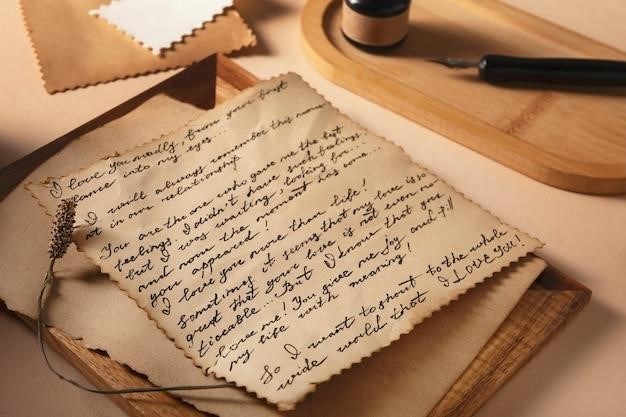 I love you madly, from your first
glance into my eyes...
I will always remember this mome
nt in our relationship
You are the one who gave me the best
feelings. I didn't have such feelings,
but I was waiting, looking for...
and now the moment has come...
you appeared!
I love you more than life!
Sometimes it seems that my love is so
great that your love is not even no
ticeable... But I know that you
love me! You give me joy and fill
my life with meaning!
So I want to shout to the whole
wide world that I LOVE YOU!